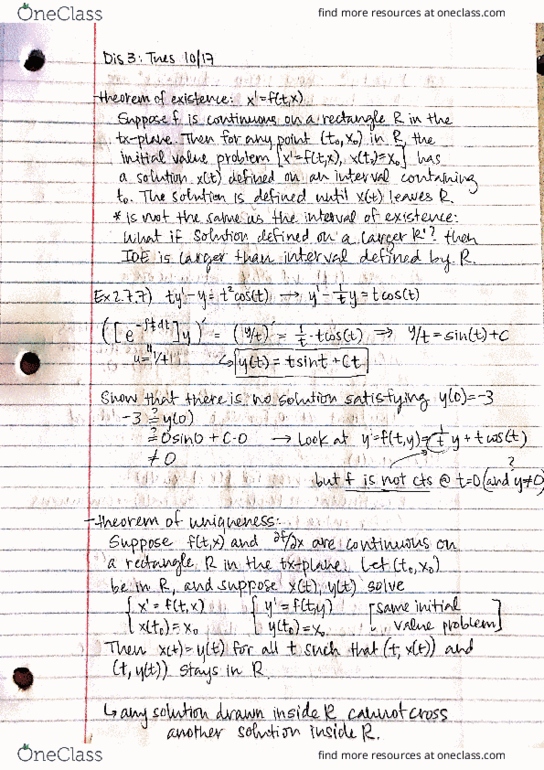 OneClass
find more resources at oneclass.com
Dis 3: Tues 10/17
-theorem of existence: x' = f(t,x)
Suppose f is continuous on a rectangle R in the
tx-plane. Then for any point (t₀, x₀) in R, the
initial value problem [x'=f(t,x), x(t₀)=x₀] has
a solution x(t) defined on an interval containing
t₀. The solution is defined until x(t) leaves R.
* is not the same as the interval of existence:
What if solution defined on a larger R'? then
IOE is larger than interval defined by R.
Ex 2.7.7) ty'-y=t²cos(t) → y'-1/t y = tcos(t)
([e^-∫1/t dt]y)' = (y/t)' = 1/t · tcos(t) ⇒ y/t = sin(t)+C
u = 1/t ↳ y(t) = tsint + Ct
Show that there is no solution satisfying y(0)=-3
-3 ≟ y(0)
≟ 0sin0 + C·0 → Look at y'=f(t,y)=1/t y + tcos(t)
≠ 0
but f is not cts @ t=0 (and y≠0)
?
-theorem of uniqueness:
Suppose f(t,x) and ∂f/∂x are continuous on
a rectangle R in the tx-plane. Let (t₀, x₀)
be in R, and suppose x(t), y(t) solve
{ x' = f(t,x) { y' = f(t,y) [same initial
x(t₀)=x₀ y(t₀)=x₀ value problem]
Then x(t)=y(t) for all t such that (t, x(t)) and
(t, y(t)) stays in R.
↳ any solution drawn inside R cannot cross
another solution inside R.
OneClass
find more resources at oneclass.com